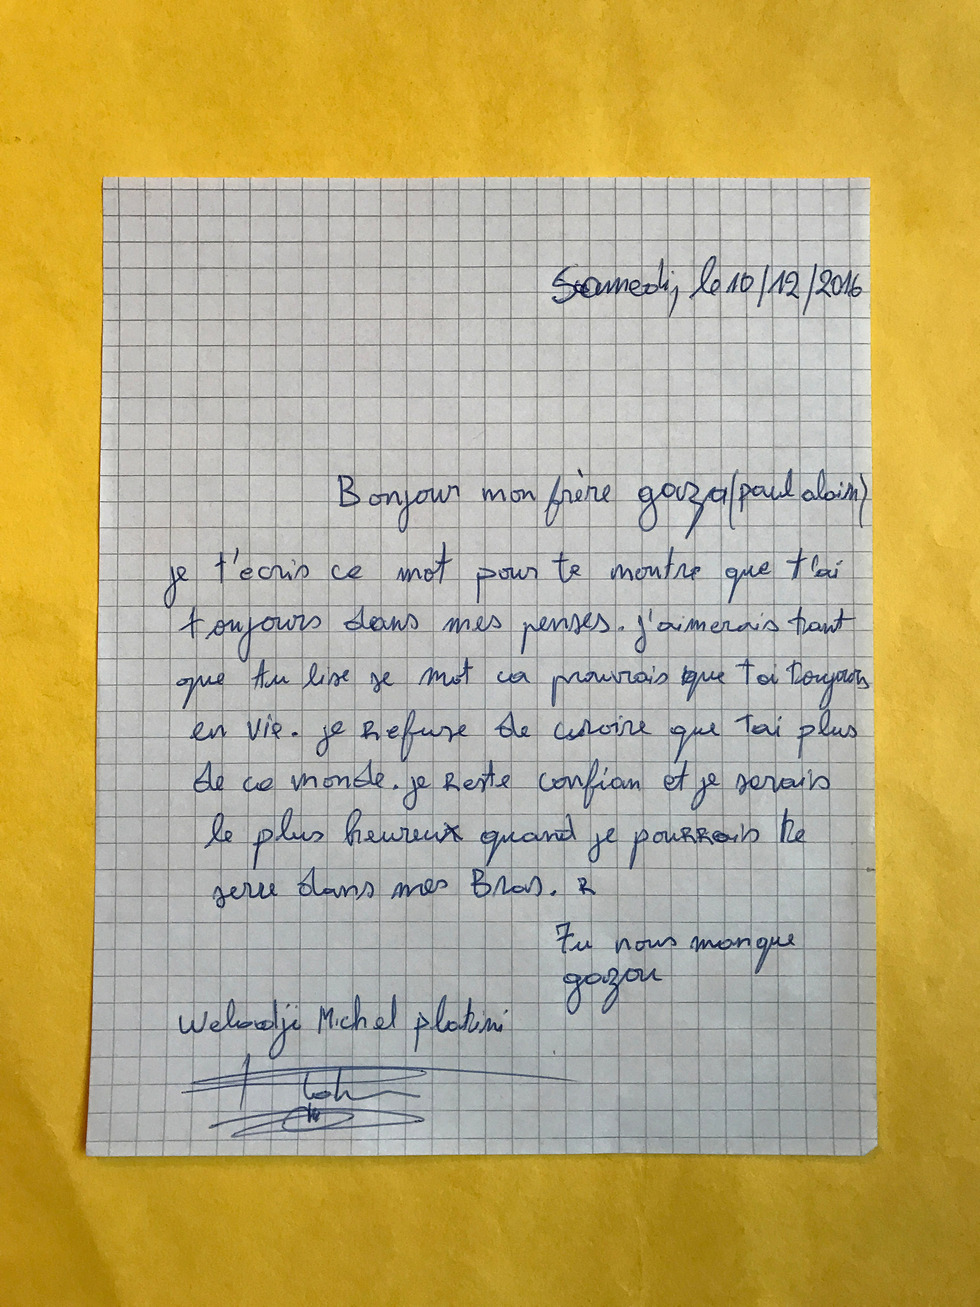 Samedi, le 10/12/2016
Bonjour mon frère gaza (paul alain)
je t'ecris ce mot pour te montre que t'ai
toujours dans mes penses. j'aimerais tant
que tu lise se mot ca prouvrais que t'ai toujours
en vie. je Refuse de croire que t'ai plus
de ce monde. je Reste confian et je serais
le plus heureux quand je pourrais te
serre dans mes Bras. R
Tu nous manque
gazou
Weloadji Michel platini